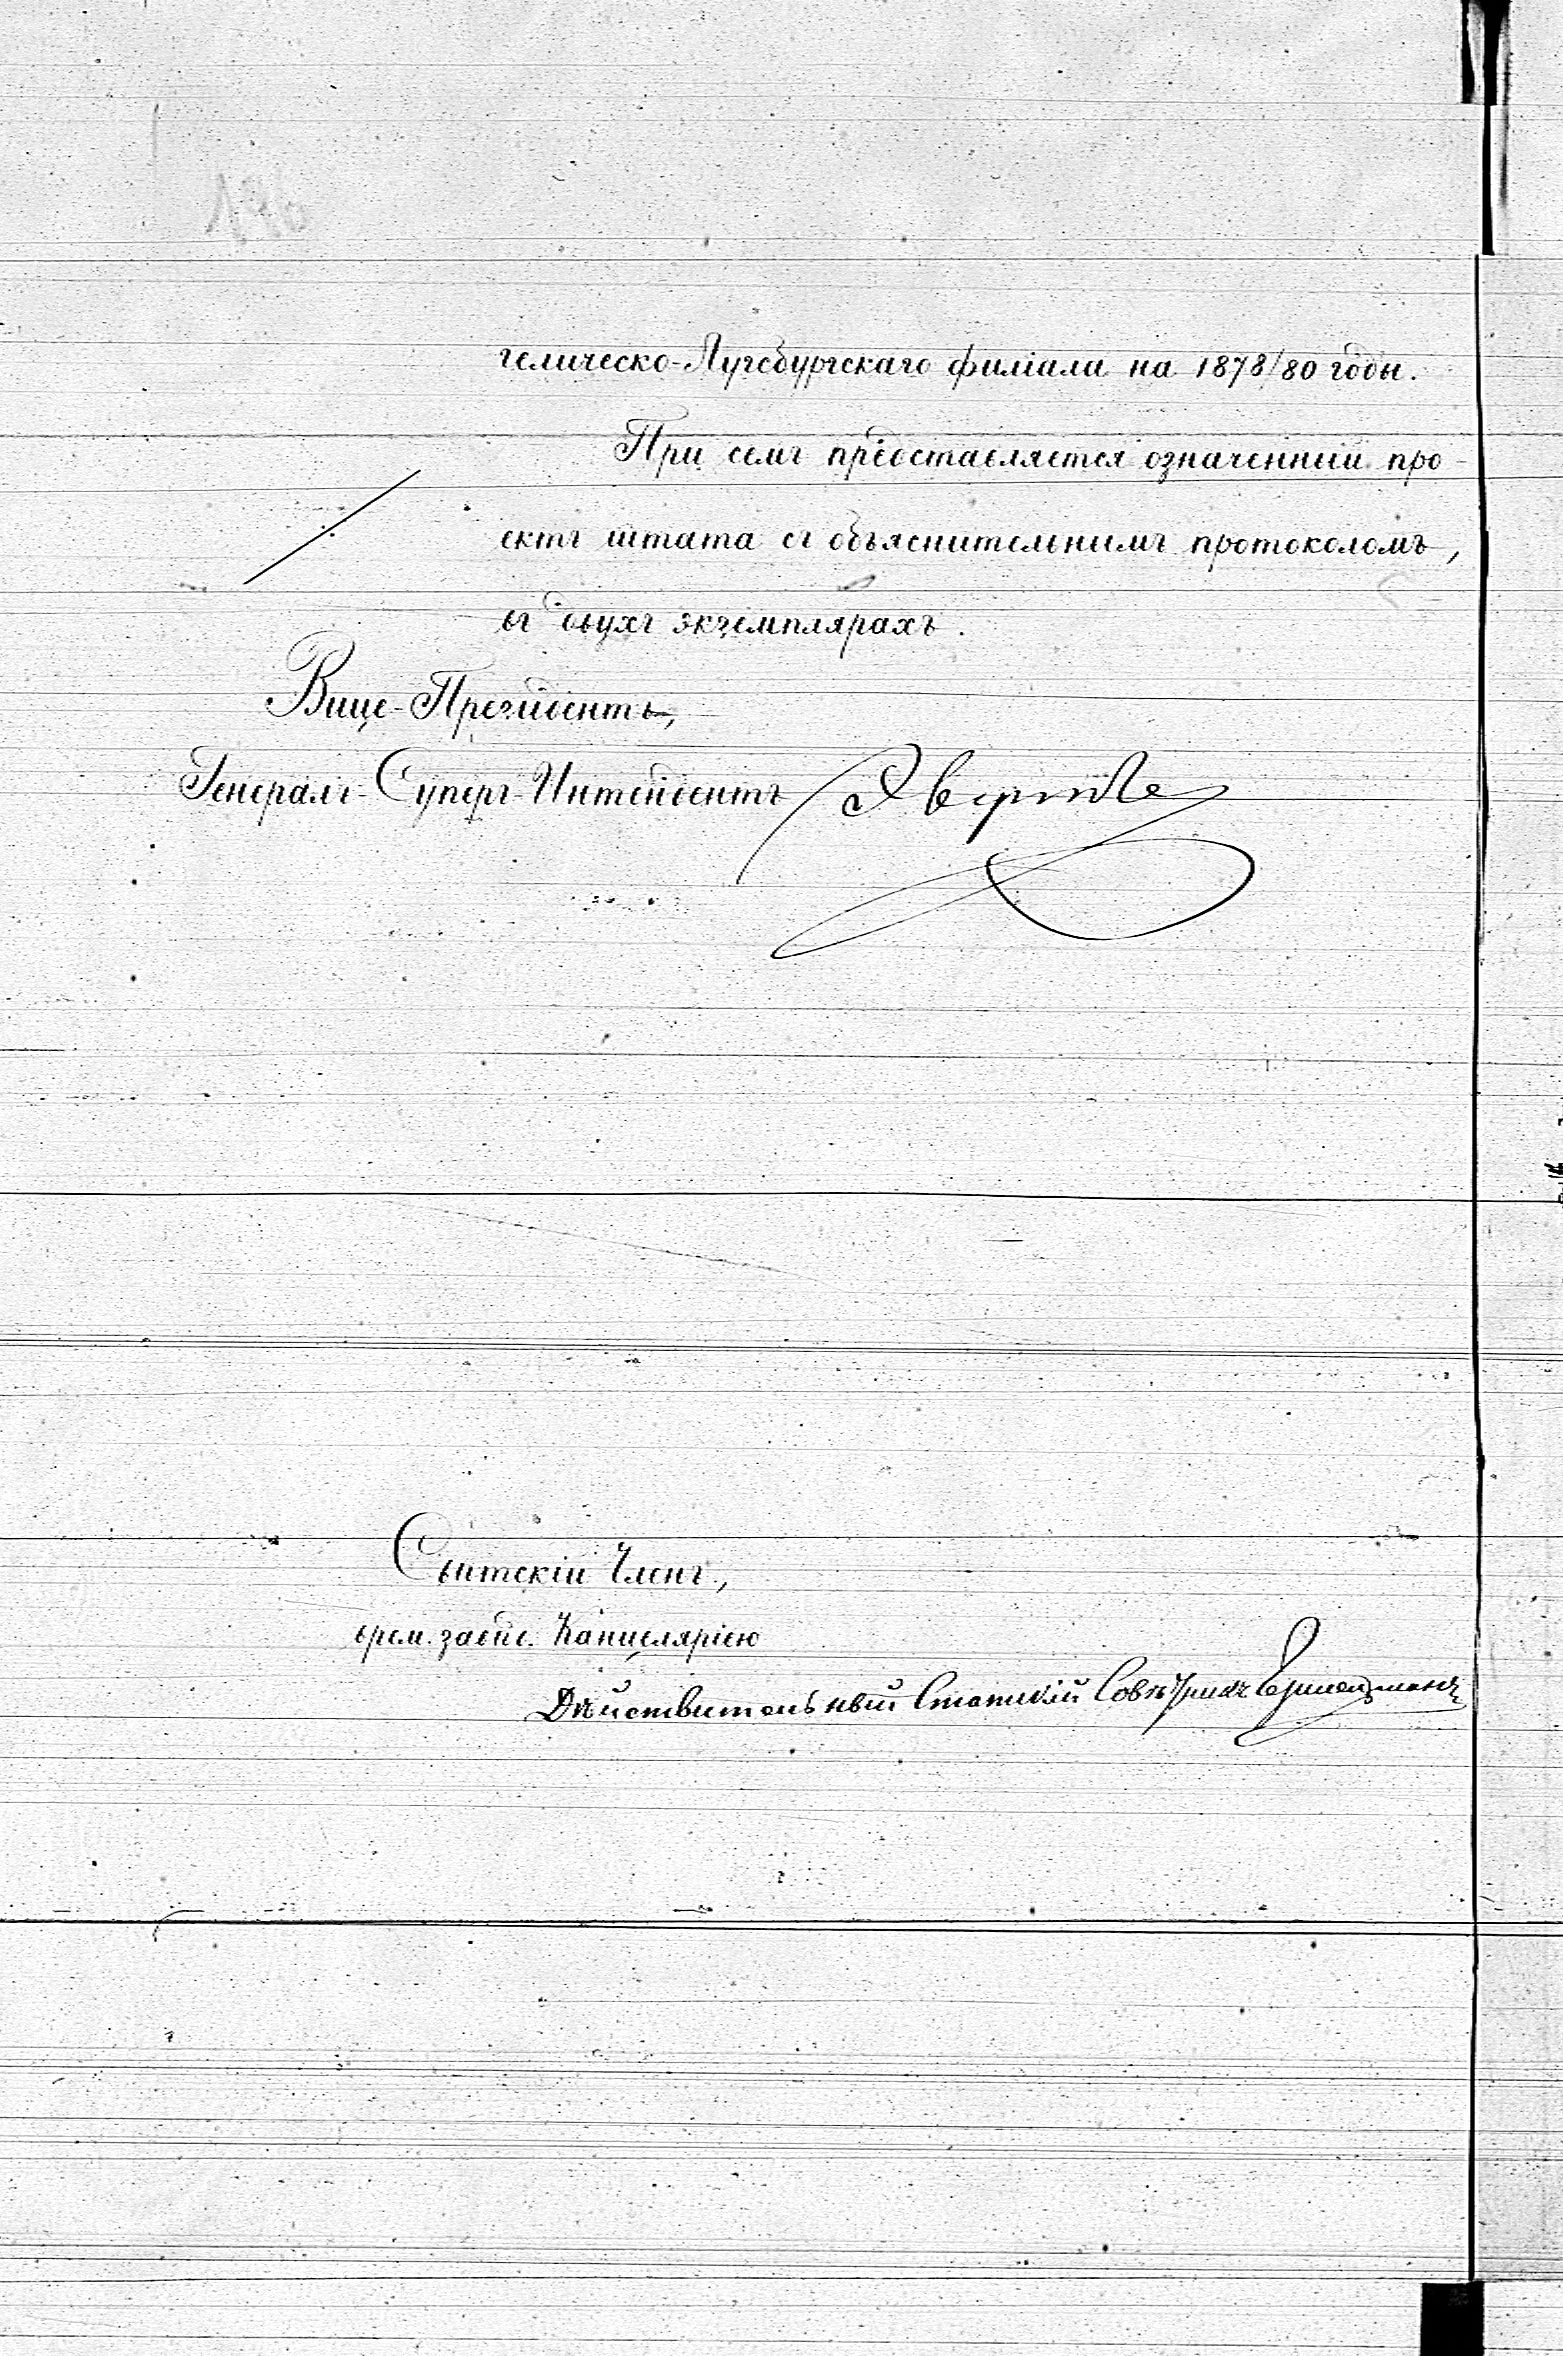 гелическо-Аугсбургскаго филіала на 1878/80 годы.
При семъ представляется означенный про-
ектъ штата съ объяснительнымъ протоколомъ,
въ двухъ экземплярахъ.
Вице-Президентъ,
Генералъ-Суперъ-Интендентъ Эверть
Свѣтскій Членъ,
врем. завѣд. Канцеляріею
Дѣйствительный Статскій Совѣтникъ